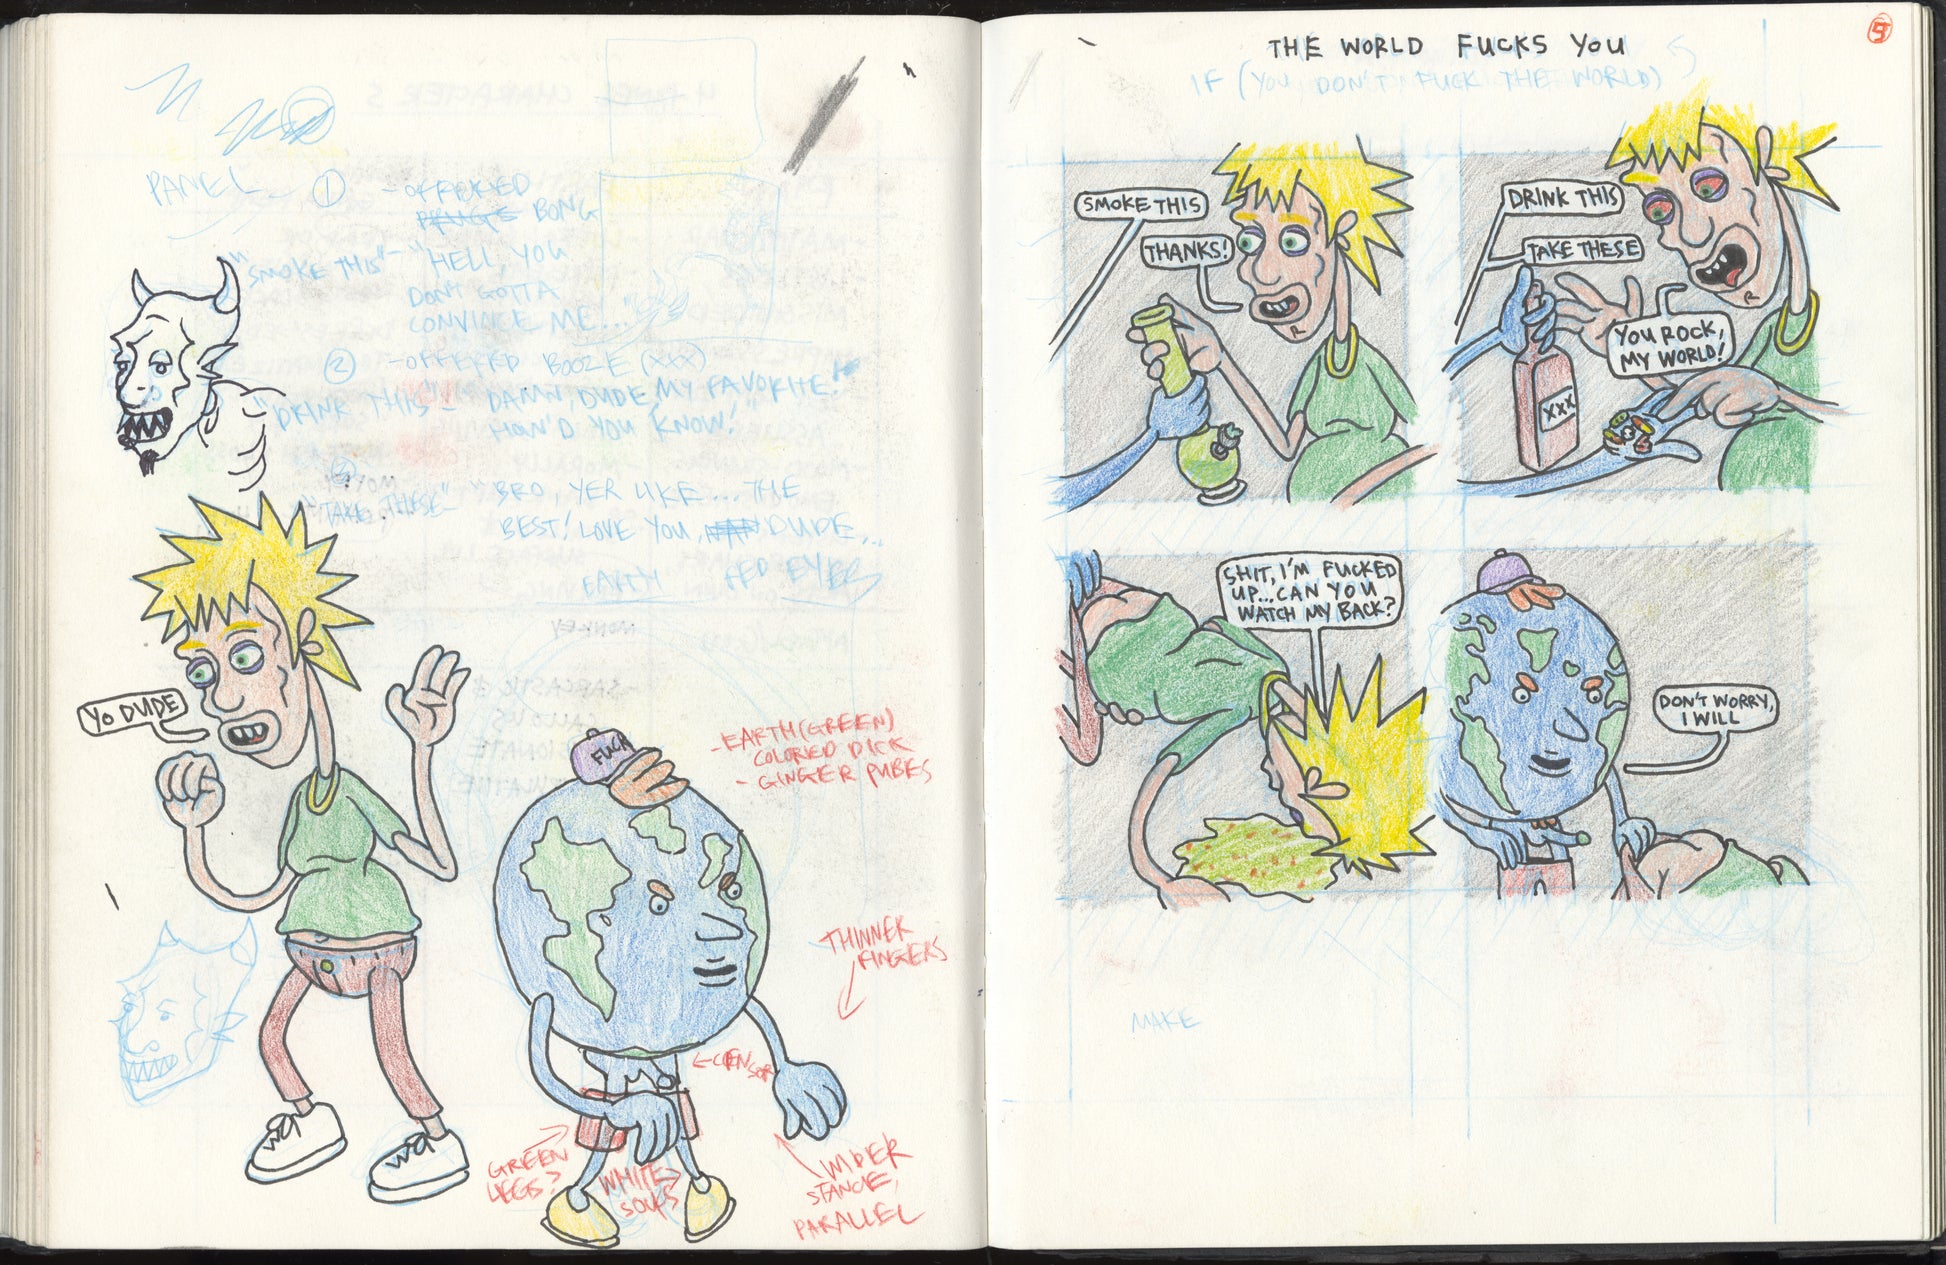 PANEL ① - OFFERED
BONG
"SMOKE THIS" - "HELL, YOU
DON'T GOTTA
CONVINCE ME...
② - OFFERED BOOZE (XXX)
"DRINK THIS - "DAMN, DUDE, MY FAVORITE!
HOW'D YOU KNOW!"
"TAKE THESE" - "BRO, YER LIKE... THE
BEST! LOVE YOU, DUDE...
EARTH RED EYES
YO DUDE
FUCK
- EARTH (GREEN)
COLORED DICK
- GINGER PUBES
THINNER
FINGERS
← CENSOR
GREEN
LEGS?
WHITE
SOLES
WIDER
STANCE,
PARALLEL
5
THE WORLD FUCKS YOU
IF (YOU DON'T FUCK THE WORLD)
SMOKE THIS
THANKS!
DRINK THIS
TAKE THESE
YOU ROCK,
MY WORLD!
XXX
SHIT, I'M FUCKED
UP...CAN YOU
WATCH MY BACK?
DON'T WORRY,
I WILL
MAKE